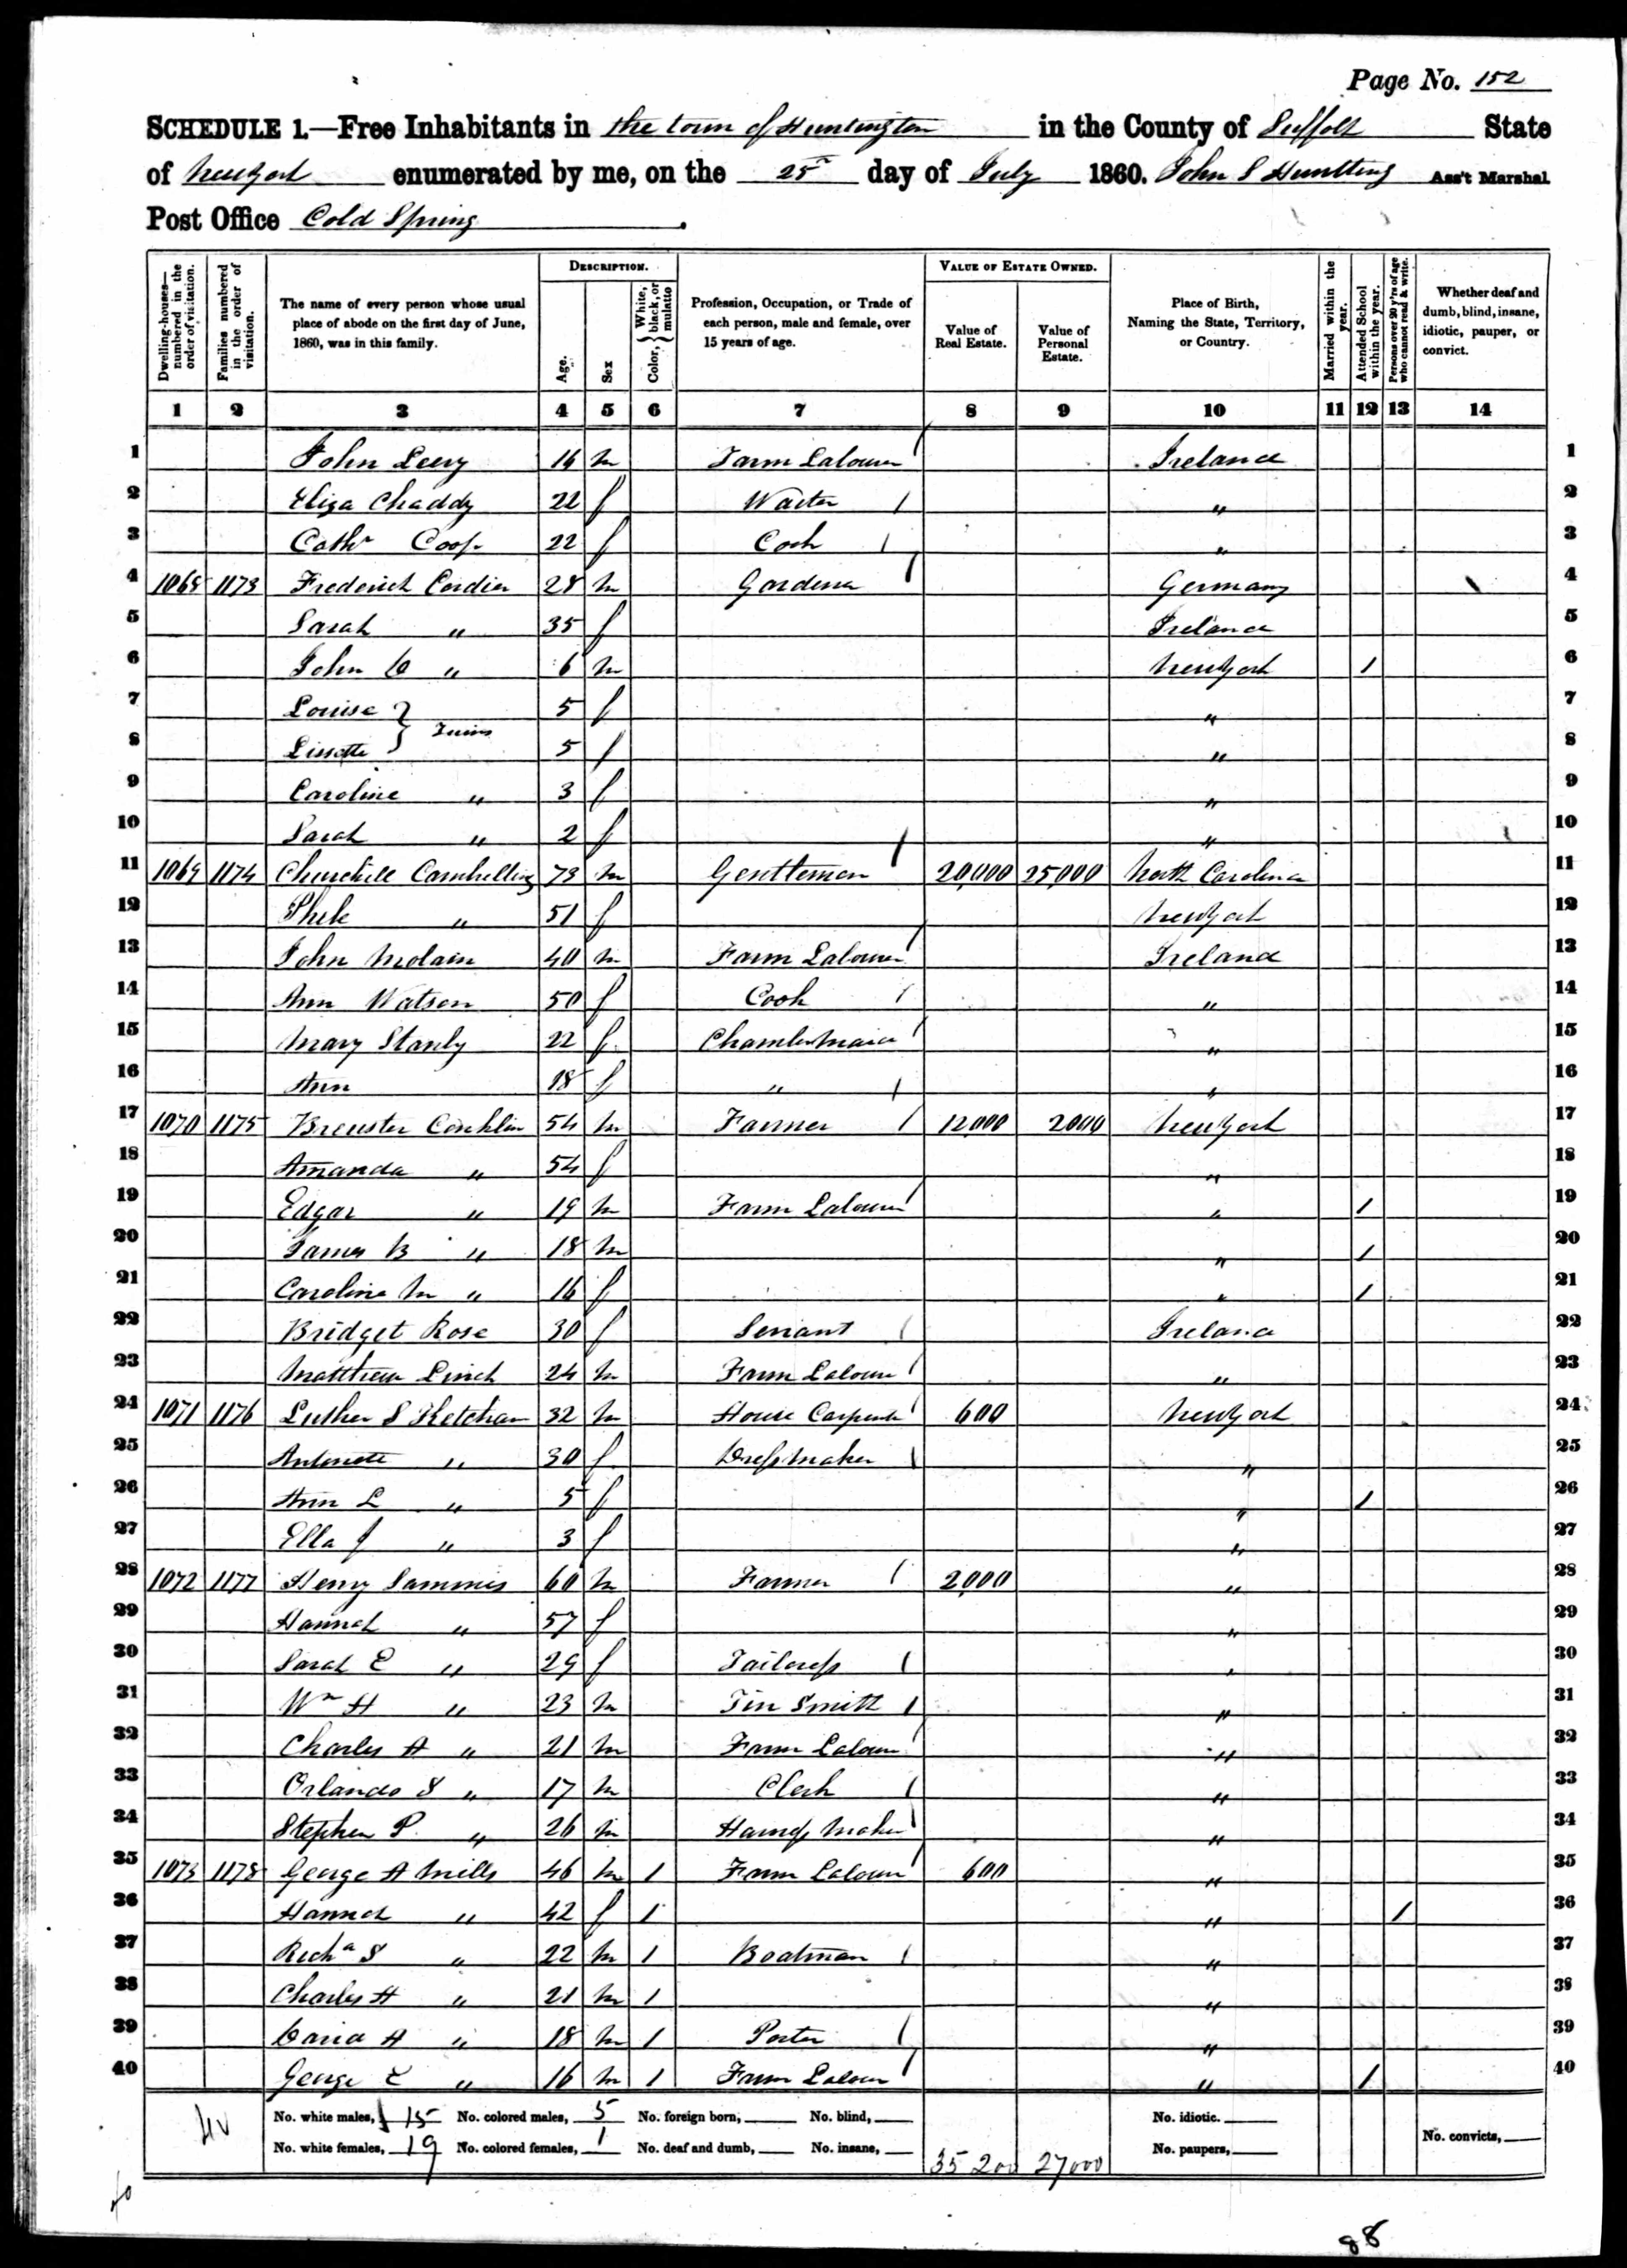 Page No. 152
SCHEDULE 1.—Free Inhabitants in the town of Huntington in the County of Suffolk State
of New York enumerated by me, on the 25 day of July 1860. John S Huntting Ass't Marshal
Post Office Cold Spring.
Dwelling-houses—numbered in the order of visitation.
Families numbered in the order of visitation.
The name of every person whose usual place of abode on the first day of June, 1860, was in this family.
DESCRIPTION.
Age.
Sex
Color, { White, black, or mulatto
Profession, Occupation, or Trade of each person, male and female, over 15 years of age.
VALUE OF ESTATE OWNED.
Value of Real Estate.
Value of Personal Estate.
Place of Birth, Naming the State, Territory, or Country.
Married within the year.
Attended School within the year.
Persons over 20 y'rs of age who cannot read & write.
Whether deaf and dumb, blind, insane, idiotic, pauper, or convict.
1 2 3 4 5 6 7 8 9 10 11 12 13 14
1 John Leery 16 m Farm Labourer / Ireland 1
2 Eliza Chaddy 22 f Waiter / " 2
3 Cathr Coop 22 f Cook / " 3
4 1068 1173 Frederick Cordier 28 m Gardener / Germany 4
5 Sarah " 35 f Ireland 5
6 John C " 6 m New York / 6
7 Louise } 5 f " 7
8 Lissette } Twins 5 f " 8
9 Caroline " 3 f " 9
10 Sarah " 2 f " 10
11 1069 1174 Churchill Cambelling 73 m Gentleman / 20,000 25,000 North Carolina 11
12 Phile " 51 f New York 12
13 John McLain 40 m Farm Labourer / Ireland 13
14 Ann Watson 50 f Cook / " 14
15 Mary Stanly 22 f Chambermaid / " 15
16 Ann 18 f " / " 16
17 1070 1175 Brewster Conklin 54 m Farmer / 12,000 2000 New York 17
18 Amanda " 54 f " 18
19 Edgar " 19 m Farm Labourer / " / 19
20 James B " 18 m " / 20
21 Caroline M " 16 f " / 21
22 Bridget Rose 30 f Servant / Ireland 22
23 Matthew Linch 24 m Farm Labourer / " 23
24 1071 1176 Luther S Ketcham 32 m House Carpenter / 600 New York 24
25 Antonette " 30 f Dressmaker / " 25
26 Ann L " 5 f " / 26
27 Ella J " 3 f " 27
28 1072 1177 Henry Sammis 60 m Farmer / 2,000 " 28
29 Hannah " 57 f " 29
30 Sarah E " 29 f Tailoress / " 30
31 Wm H " 23 m Tin Smith / " 31
32 Charles A " 21 m Farm Labourer / " 32
33 Orlando S " 17 m Clerk / " 33
34 Stephen P. " 26 m Harness Maker / " 34
35 1073 1178 George A Mills 46 m 1 Farm Labourer / 600 " 35
36 Hannah " 42 f 1 " / 36
37 Richd S " 22 m 1 Boatman / " 37
38 Charles H " 21 m 1 " 38
39 David A " 18 m 1 Porter / " 39
40 George E " 16 m 1 Farm Labourer / " / 40
No. white males, 15 No. colored males, 5 No. foreign born, No. blind, No. idiotic.
No. white females, 19 No. colored females, 1 No. deaf and dumb, No. insane, 35 200 27000 No. paupers, No. convicts,
40
88